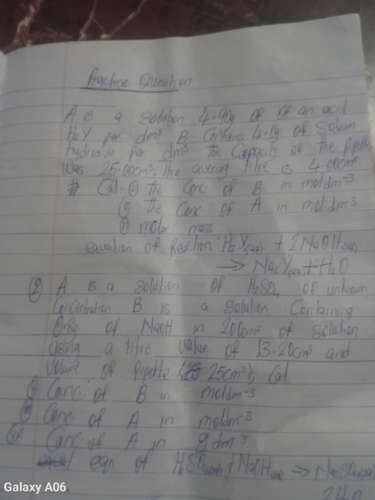 Practice Question
A is a solution 4.90g of of an acid
H2Y per dm3 B contains 4.0g of sodium
hydroxide per dm3 The capacity of the Pipette
was 25.00cm3. The average titre is
Cal ① the Conc of B in moldm-3
② the Conc of A in mol dm-3
molar mass
equation of Reaction H2Y(aq) + 2NaOH(aq)
→ Na2Y(aq) + H2O
② A is a solution of H2SO4 of unknown
Concentration B is a solution Containing
of NaOH in 200cm3 of solution
using a titre value of 13.20cm3 and
Volume of pipette 25cm3, Cal
Conc of B in moldm-3
Conc of A in moldm-3
Conc of A in gdm-3
eqn of H2SO4(aq) + NaOH(aq) →
Galaxy A06